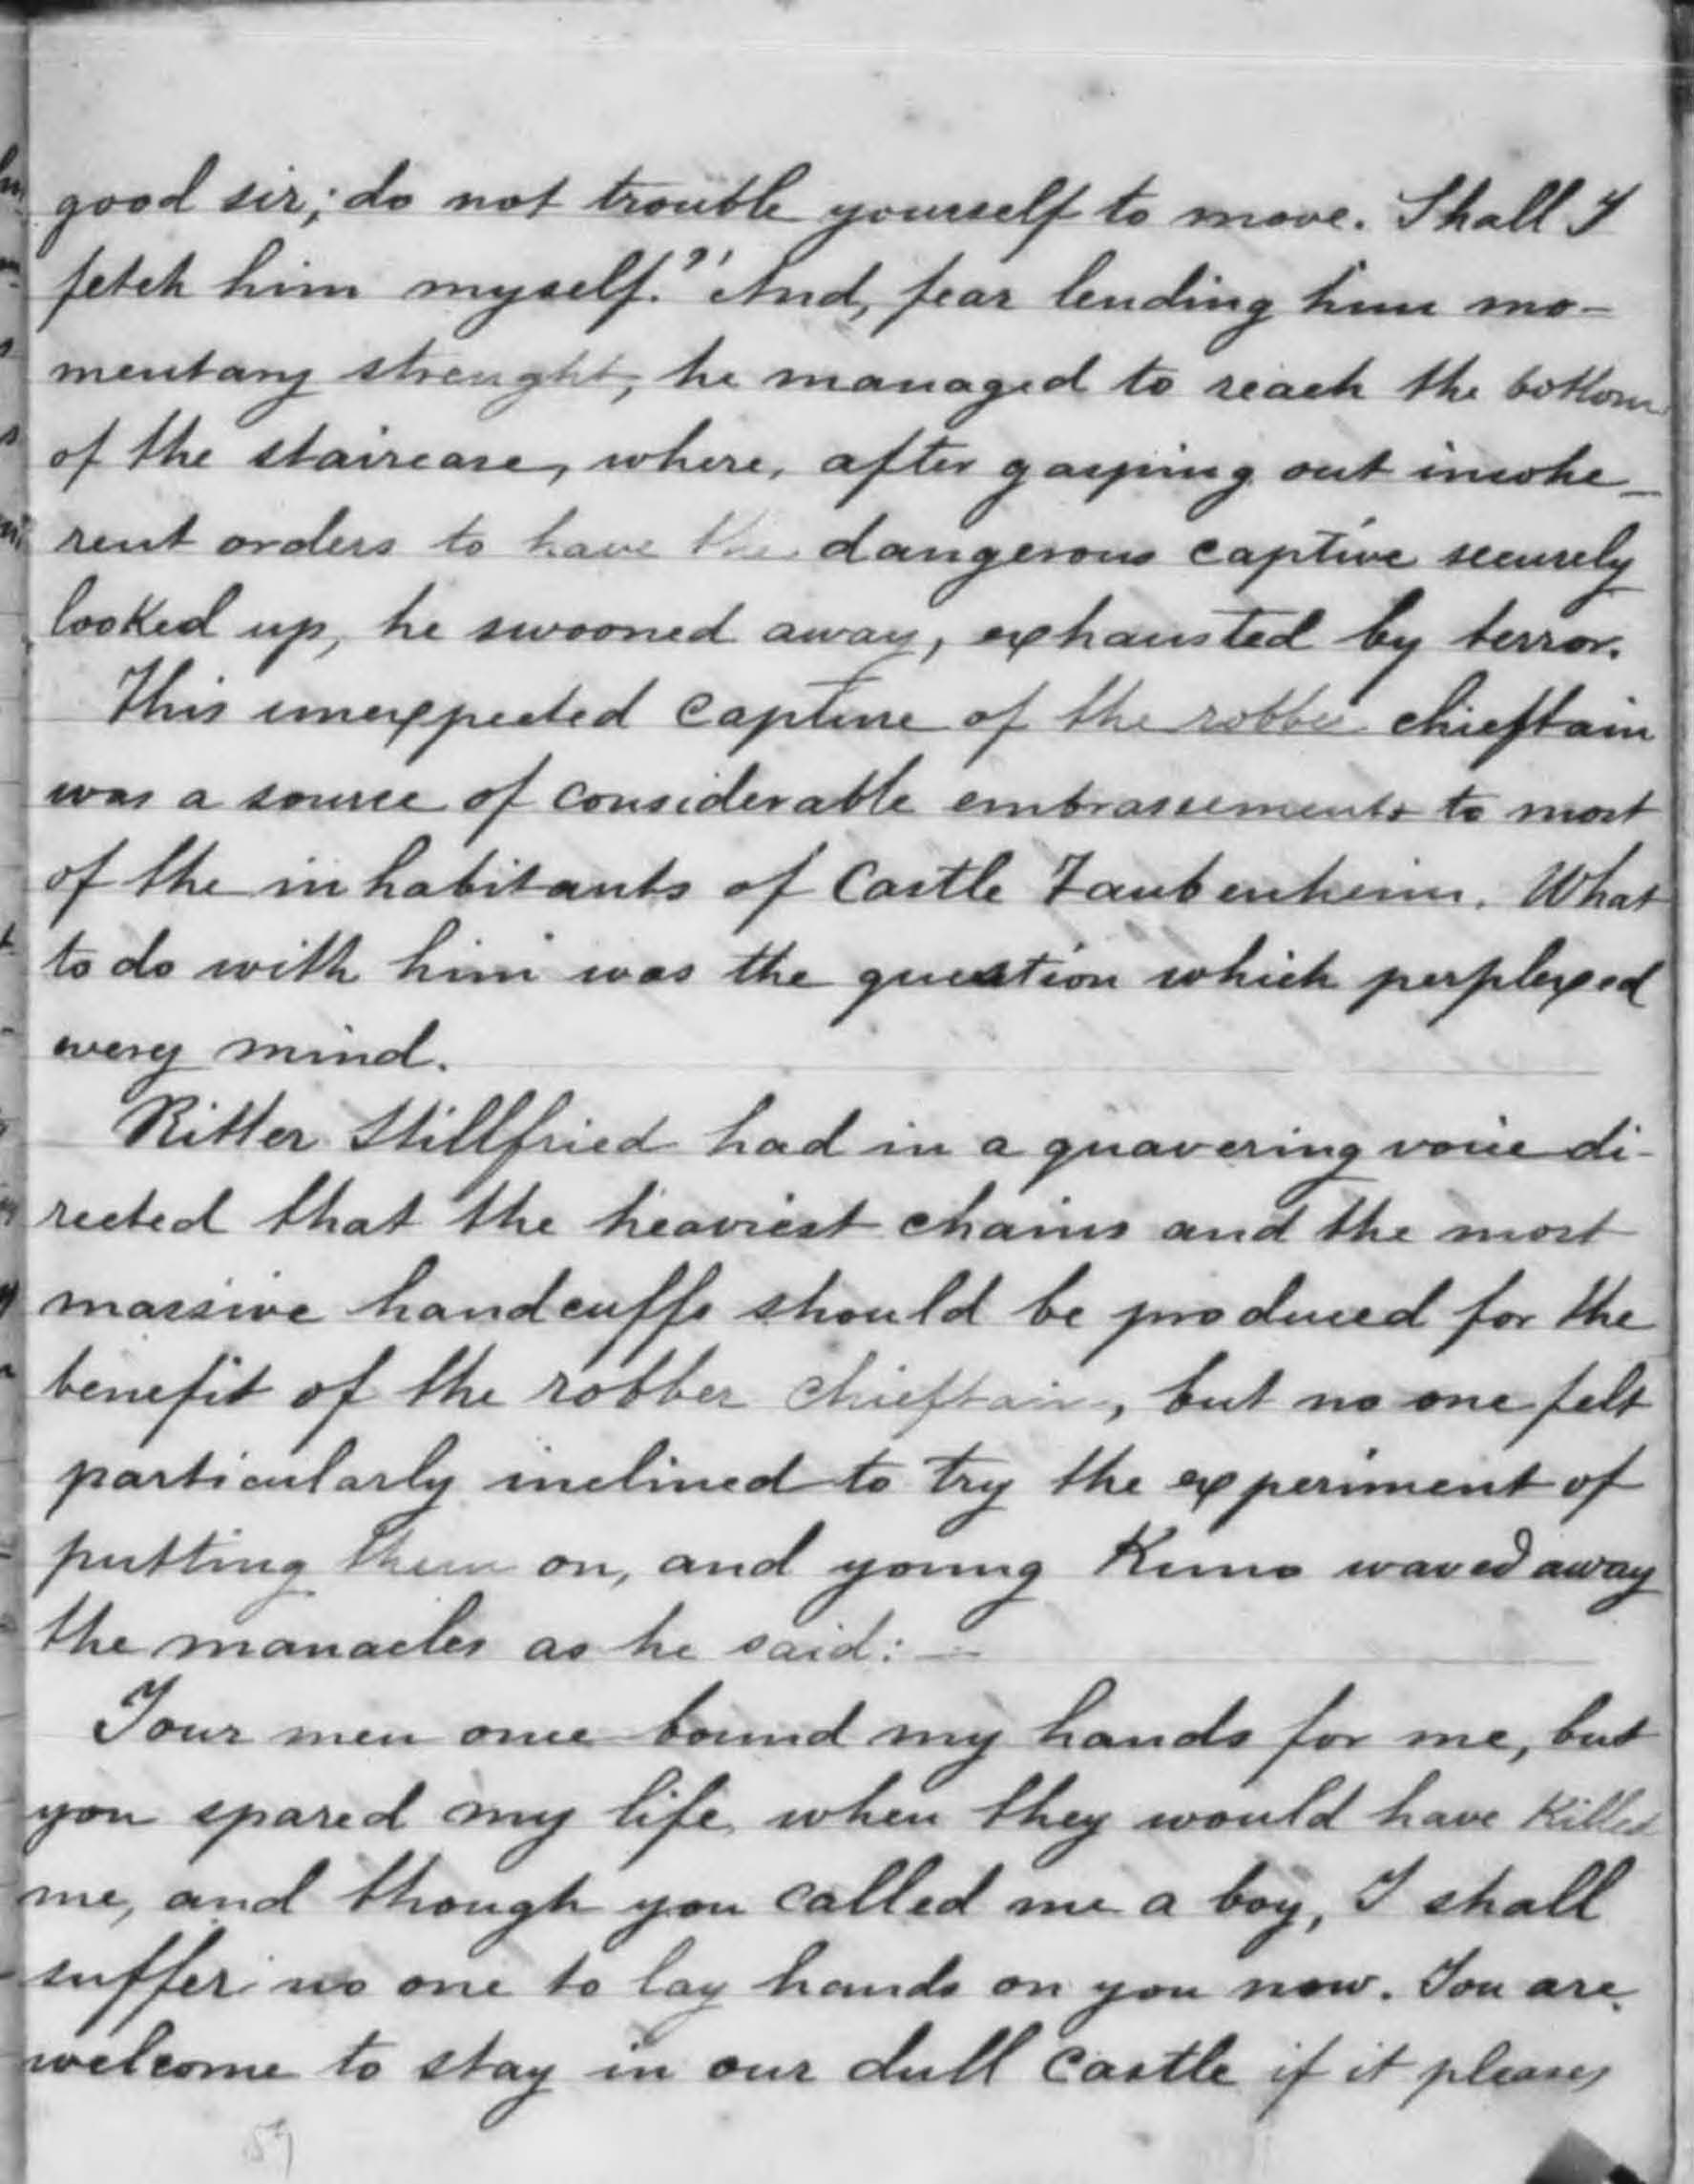 good sir; do not trouble yourself to move. Shall I
fetch him myself?" And, fear lending him mo-
mentary strenght, he managed to reach the bottom
of the staircase, where, after gasping out incohe-
rent orders to have the dangerous captive securely
looked up, he swooned away, exhausted by terror.
This unexpected capture of the robber chieftain
was a source of considerable embrassements to most
of the inhabitants of Castle Taubenheim. What
to do with him was the question which perplexed
every mind.
Ritter Stillfried had in a quavering voice di-
rected that the heaviest chains and the most
massive handcuffs should be produced for the
benefit of the robber chieftain, but no one felt
particularly inclined to try the experiment of
putting them on, and young Kuno waved away
the manacles as he said: —
Your men once bound my hands for me, but
you spared my life when they would have killed
me, and though you called me a boy, I shall
suffer no one to lay hands on you now. You are
welcome to stay in our dull castle if it pleases
59